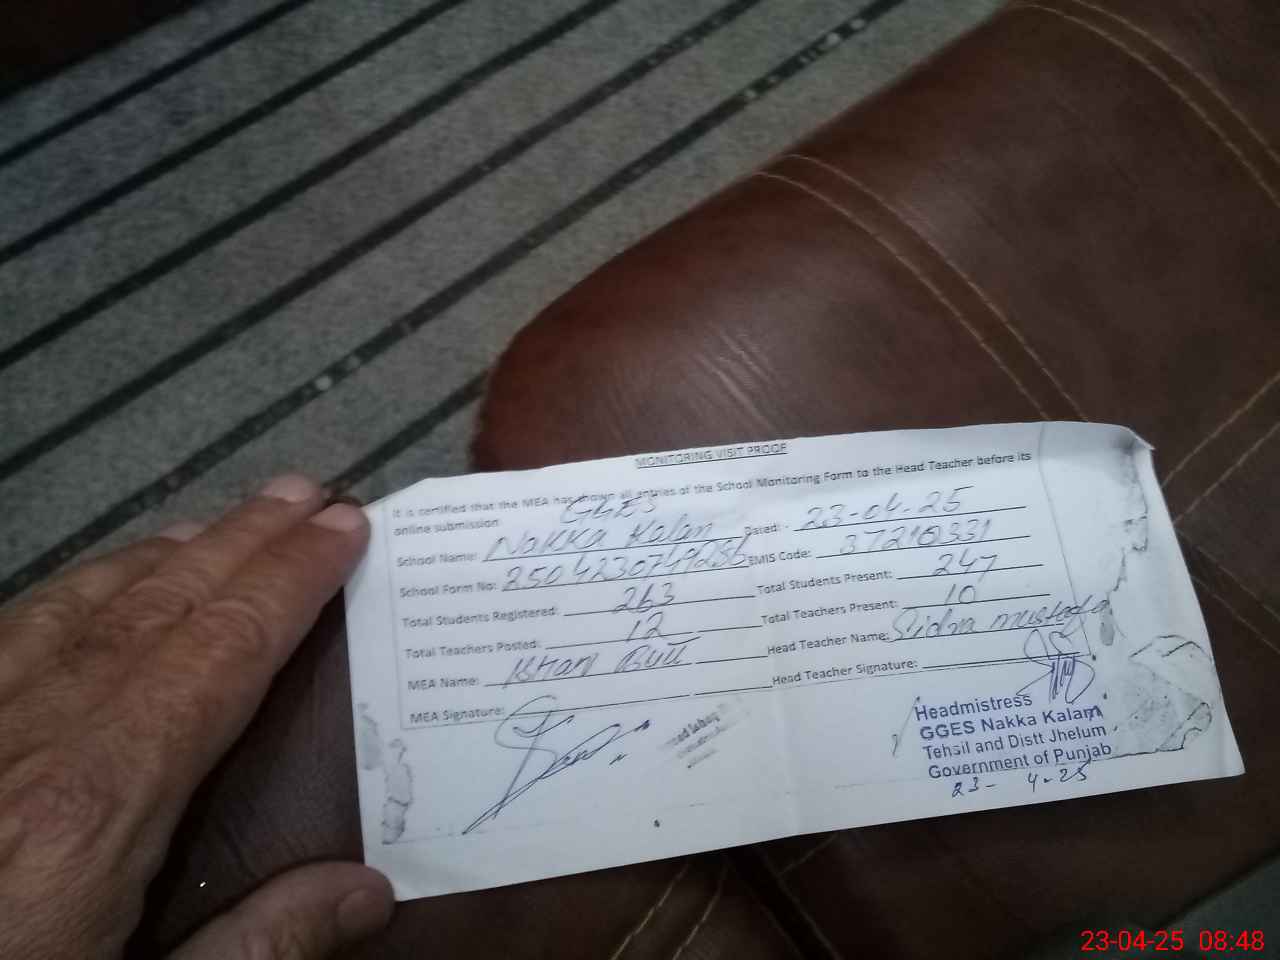 MONITORING VISIT PROOF
It is certified that the MEA has shown all entries of the School Monitoring Form to the Head Teacher before its
online submission
GGES
School Name: Nakka Kalan Dated: - 23-04-25
School Form No: EMIS Code: 37210331
Total Students Registered: 263 Total Students Present: 247
Total Teachers Posted: 12 Total Teachers Present: 10
MEA Name: Butt Head Teacher Name: Sidra mustafa
MEA Signature: Head Teacher Signature:
Headmistress
GGES Nakka Kalan
Tehsil and Distt Jhelum
Government of Punjab
23- 4-25
23-04-25 08:48